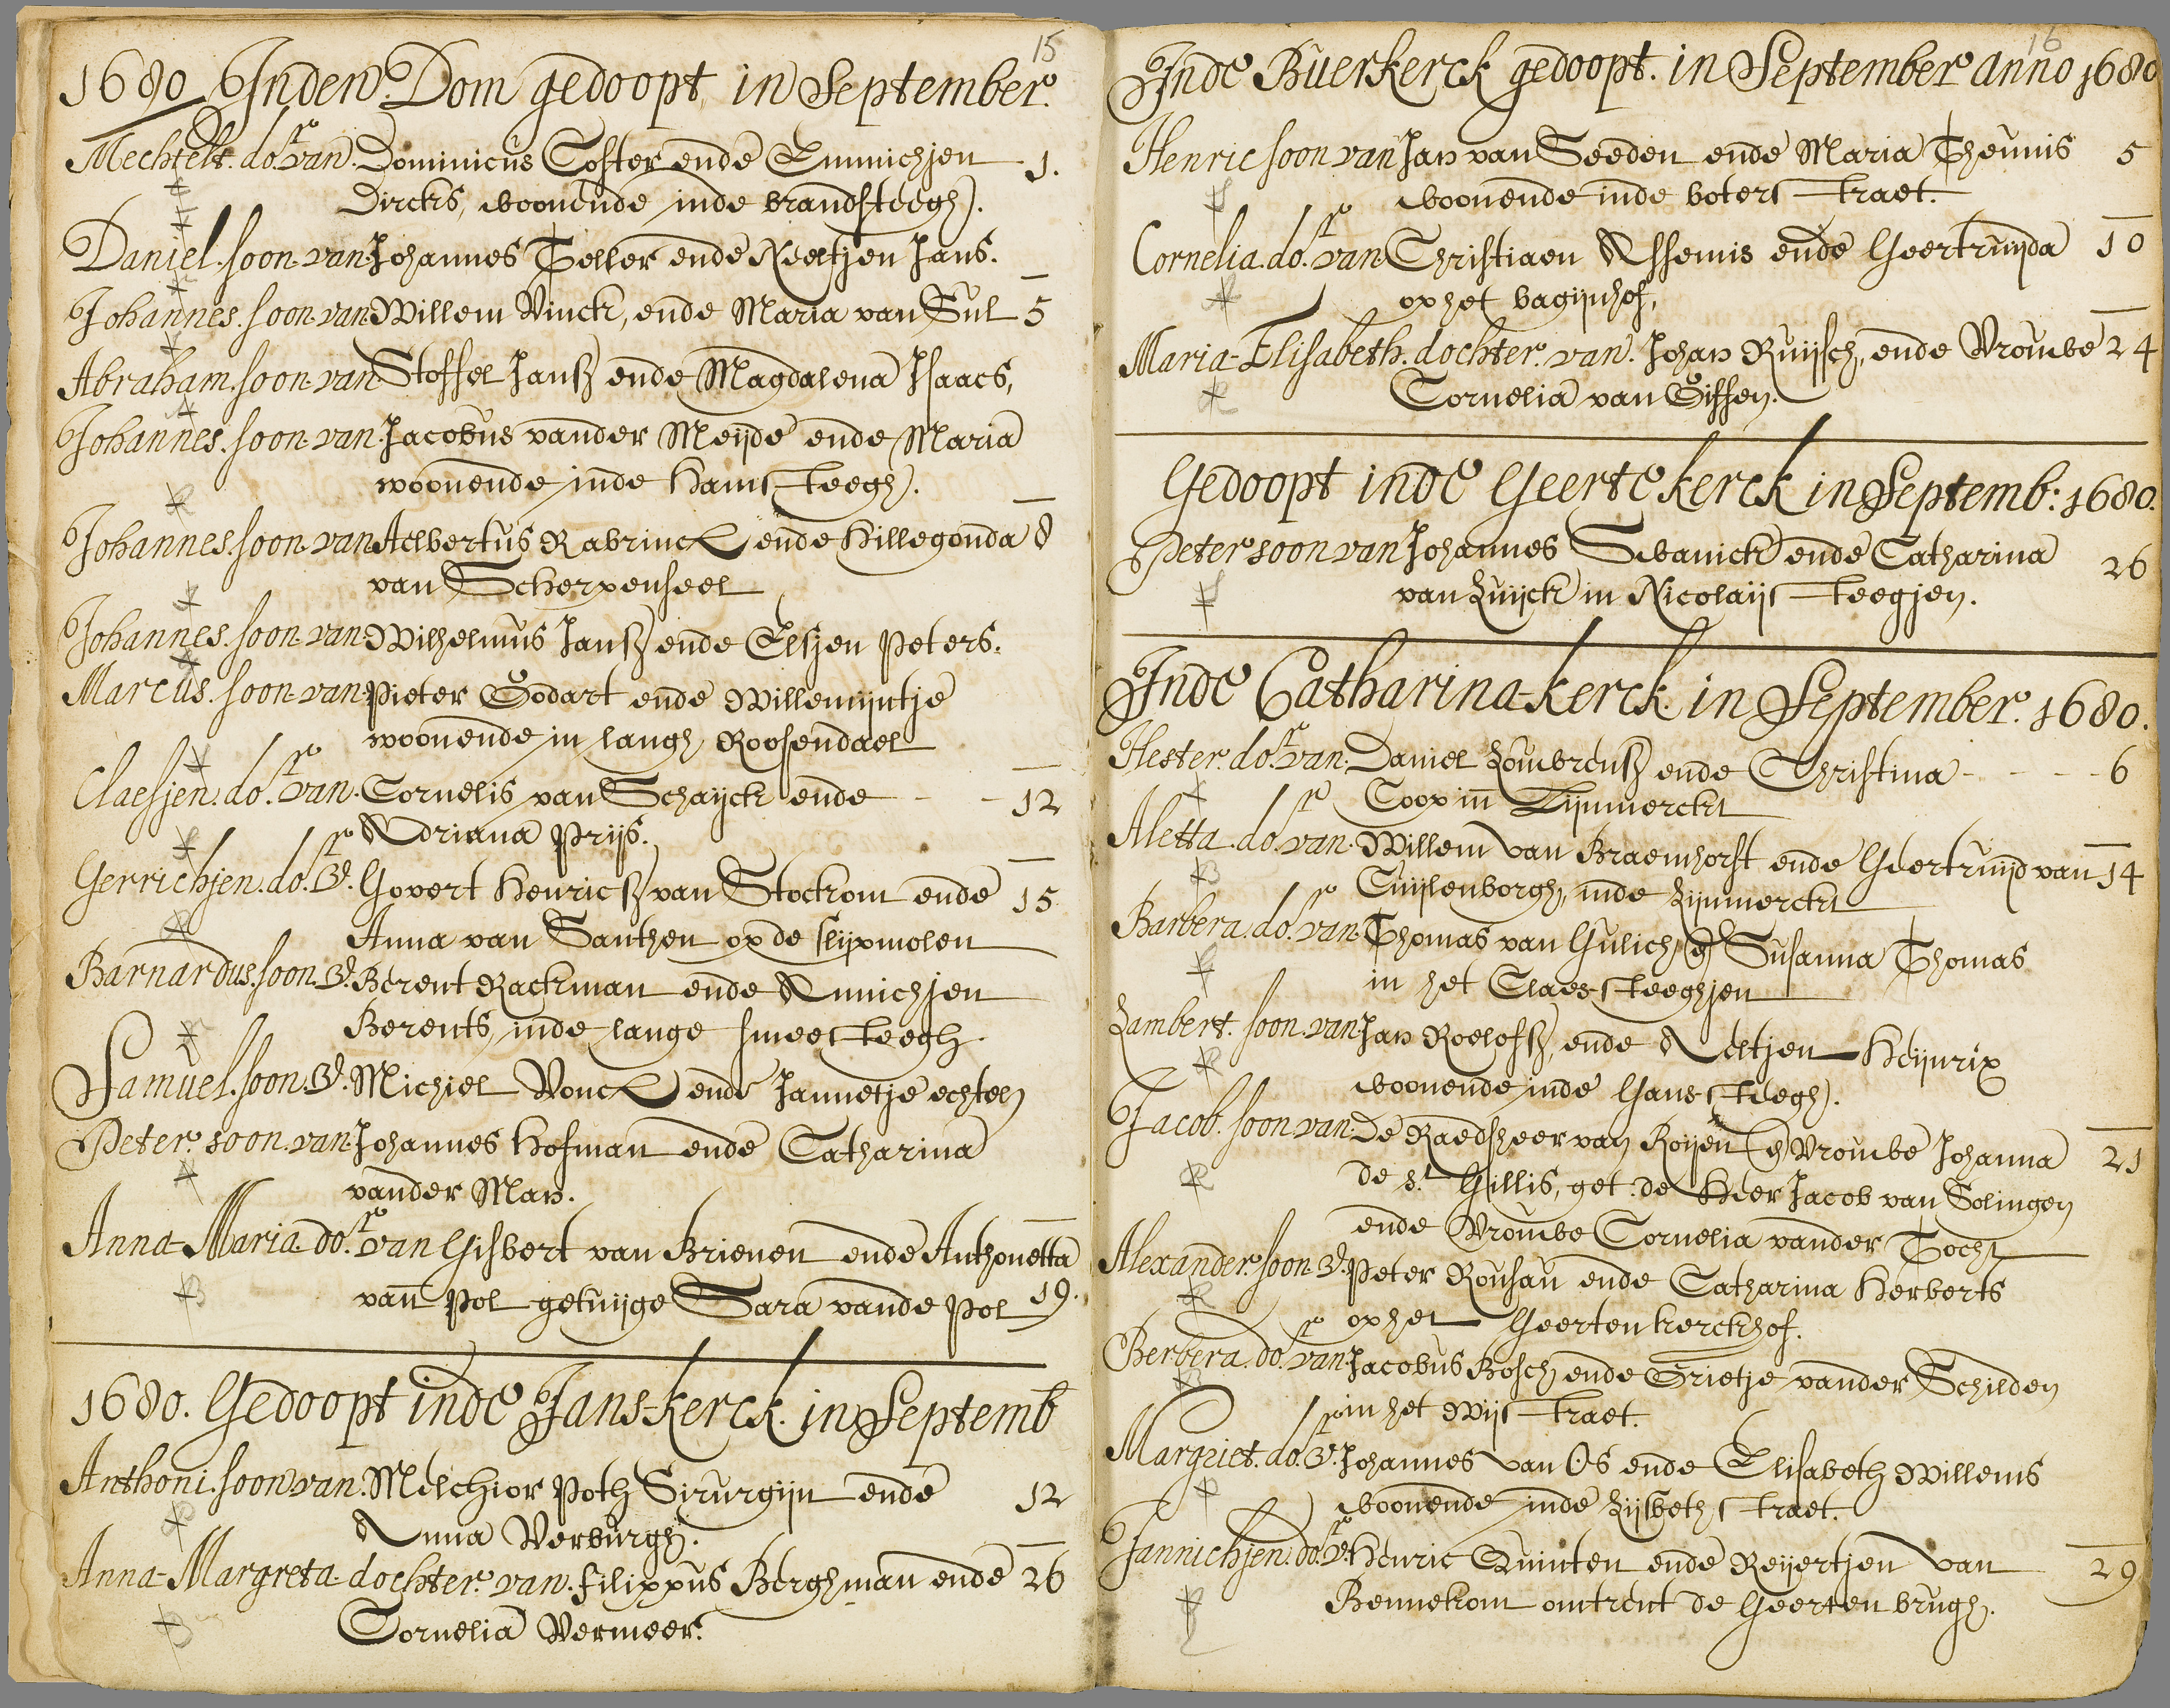 15
1680 Inden Dom gedoopt in September.
Mechtelt. dor. van. Dominicus Coster ende Emmichjen 1.
Dircks, woonende inde brandsteegh.
Daniel. soon. van Johannes Teller ende Neeltjen Jans.
Johannes. soon. van Willem Vinck, ende Maria van Sul 5
Abraham. soon. van Stoffel Jansz ende Magdalena Isaacs,
Johannes. soon. van. Jacobus vander Meijde ende Maria
woonende inde Hamsteegh.
Johannes. soon. van Aelbertus Rabrinck ende Hillegonda 8
van Scherpenseel
Johannes. soon. van Wilhelmus Jansz ende Elsjen Peters.
Marcus. soon. van Pieter Godart ende Willemijntje
woonende in langh Roosendael
Claesjen. dor. van. Cornelis van Schayck ende - - 12
Adriana Prijs.
Gerrichjen. dor. v. Govert Henricsz van Stockom ende 15
Anna van Santhen op de slijpmolen
Barnardus. soon. v. Berent Rackman ende Annichjen
Berents, inde lange smeesteegh.
Samuel. soon. v. Michiel Vonck ende Jannetje echtel
Peter. soon. van Johannes Hofman ende Catharina
vander Man.
Anna-Maria. dor. van Gisbert van Brienen ende Anthonetta
van Pol getuijge Sara vande Pol 19.
1680. Gedoopt inde Jans-kerck. in Septemb
Anthoni. soon van. Melchior Poth Sirurgijn ende 12
Anna Verburgh.
Anna-Margreta. dochter. van. Filippus Berghman ende 26
Cornelia Vermeer.
16
Inde Buerkerck gedoopt. in September anno 1680
Henric soon van Jan van Seeden ende Maria Theunis 5
woonende inde boterstraet.
Cornelia. dor. van Christiaen Assemis ende Geertruijda 10
op het bagijnhof,
Maria-Elisabeth. dochter. van. Johan Ruijsch, ende Vrouwe 24
Cornelia van Giffen.
Gedoopt inde Geerte kerck in Septemb: 1680.
Peter soon van Johannes Swanick ende Catharina 26
van Zuijck in Nicolaijsteegjen.
Inde Catharina-kerck. in September. 1680.
Hester. dor. van. Daniel Louwrensz ende Christina - - - - 6
Coop in Lijnmerckt
Aletta. dor. van. Willem van Braemhorst ende Geertruijd van 14
Cuijlenborgh, inde Lijnmerckt
Barbera. dor. van. Thomas van Gulich, e Susanna Thomas
in het Claes-steeghjen
Lambert. soon. van Jan Roelofsz, ende Aeltjen Heijnrix
woonende inde Gans-steegh.
Jacob. soon van. De Raedsheer van Roijen e Vrouwe Johanna 21
de St. Gillis, get. de Heer Jacob van Solingen
ende Vrouwe Cornelia vander Tocht
Alexander. soon. v. Peter Rousau ende Catharina Herberts
op het Geertenkerckhof.
Berbera. dor. van Jacobus Bosch ende Grietje vander Schilden
in het Wijstraet.
Margriet. dor. v. Johannes van Os ende Elisabeth Willems
woonende inde Lijsbethstraet.
Jannichjen. dor. v. Henric Quinten ende Reijertjen van 29
Bennekom omtrent de Geertenbrugh.